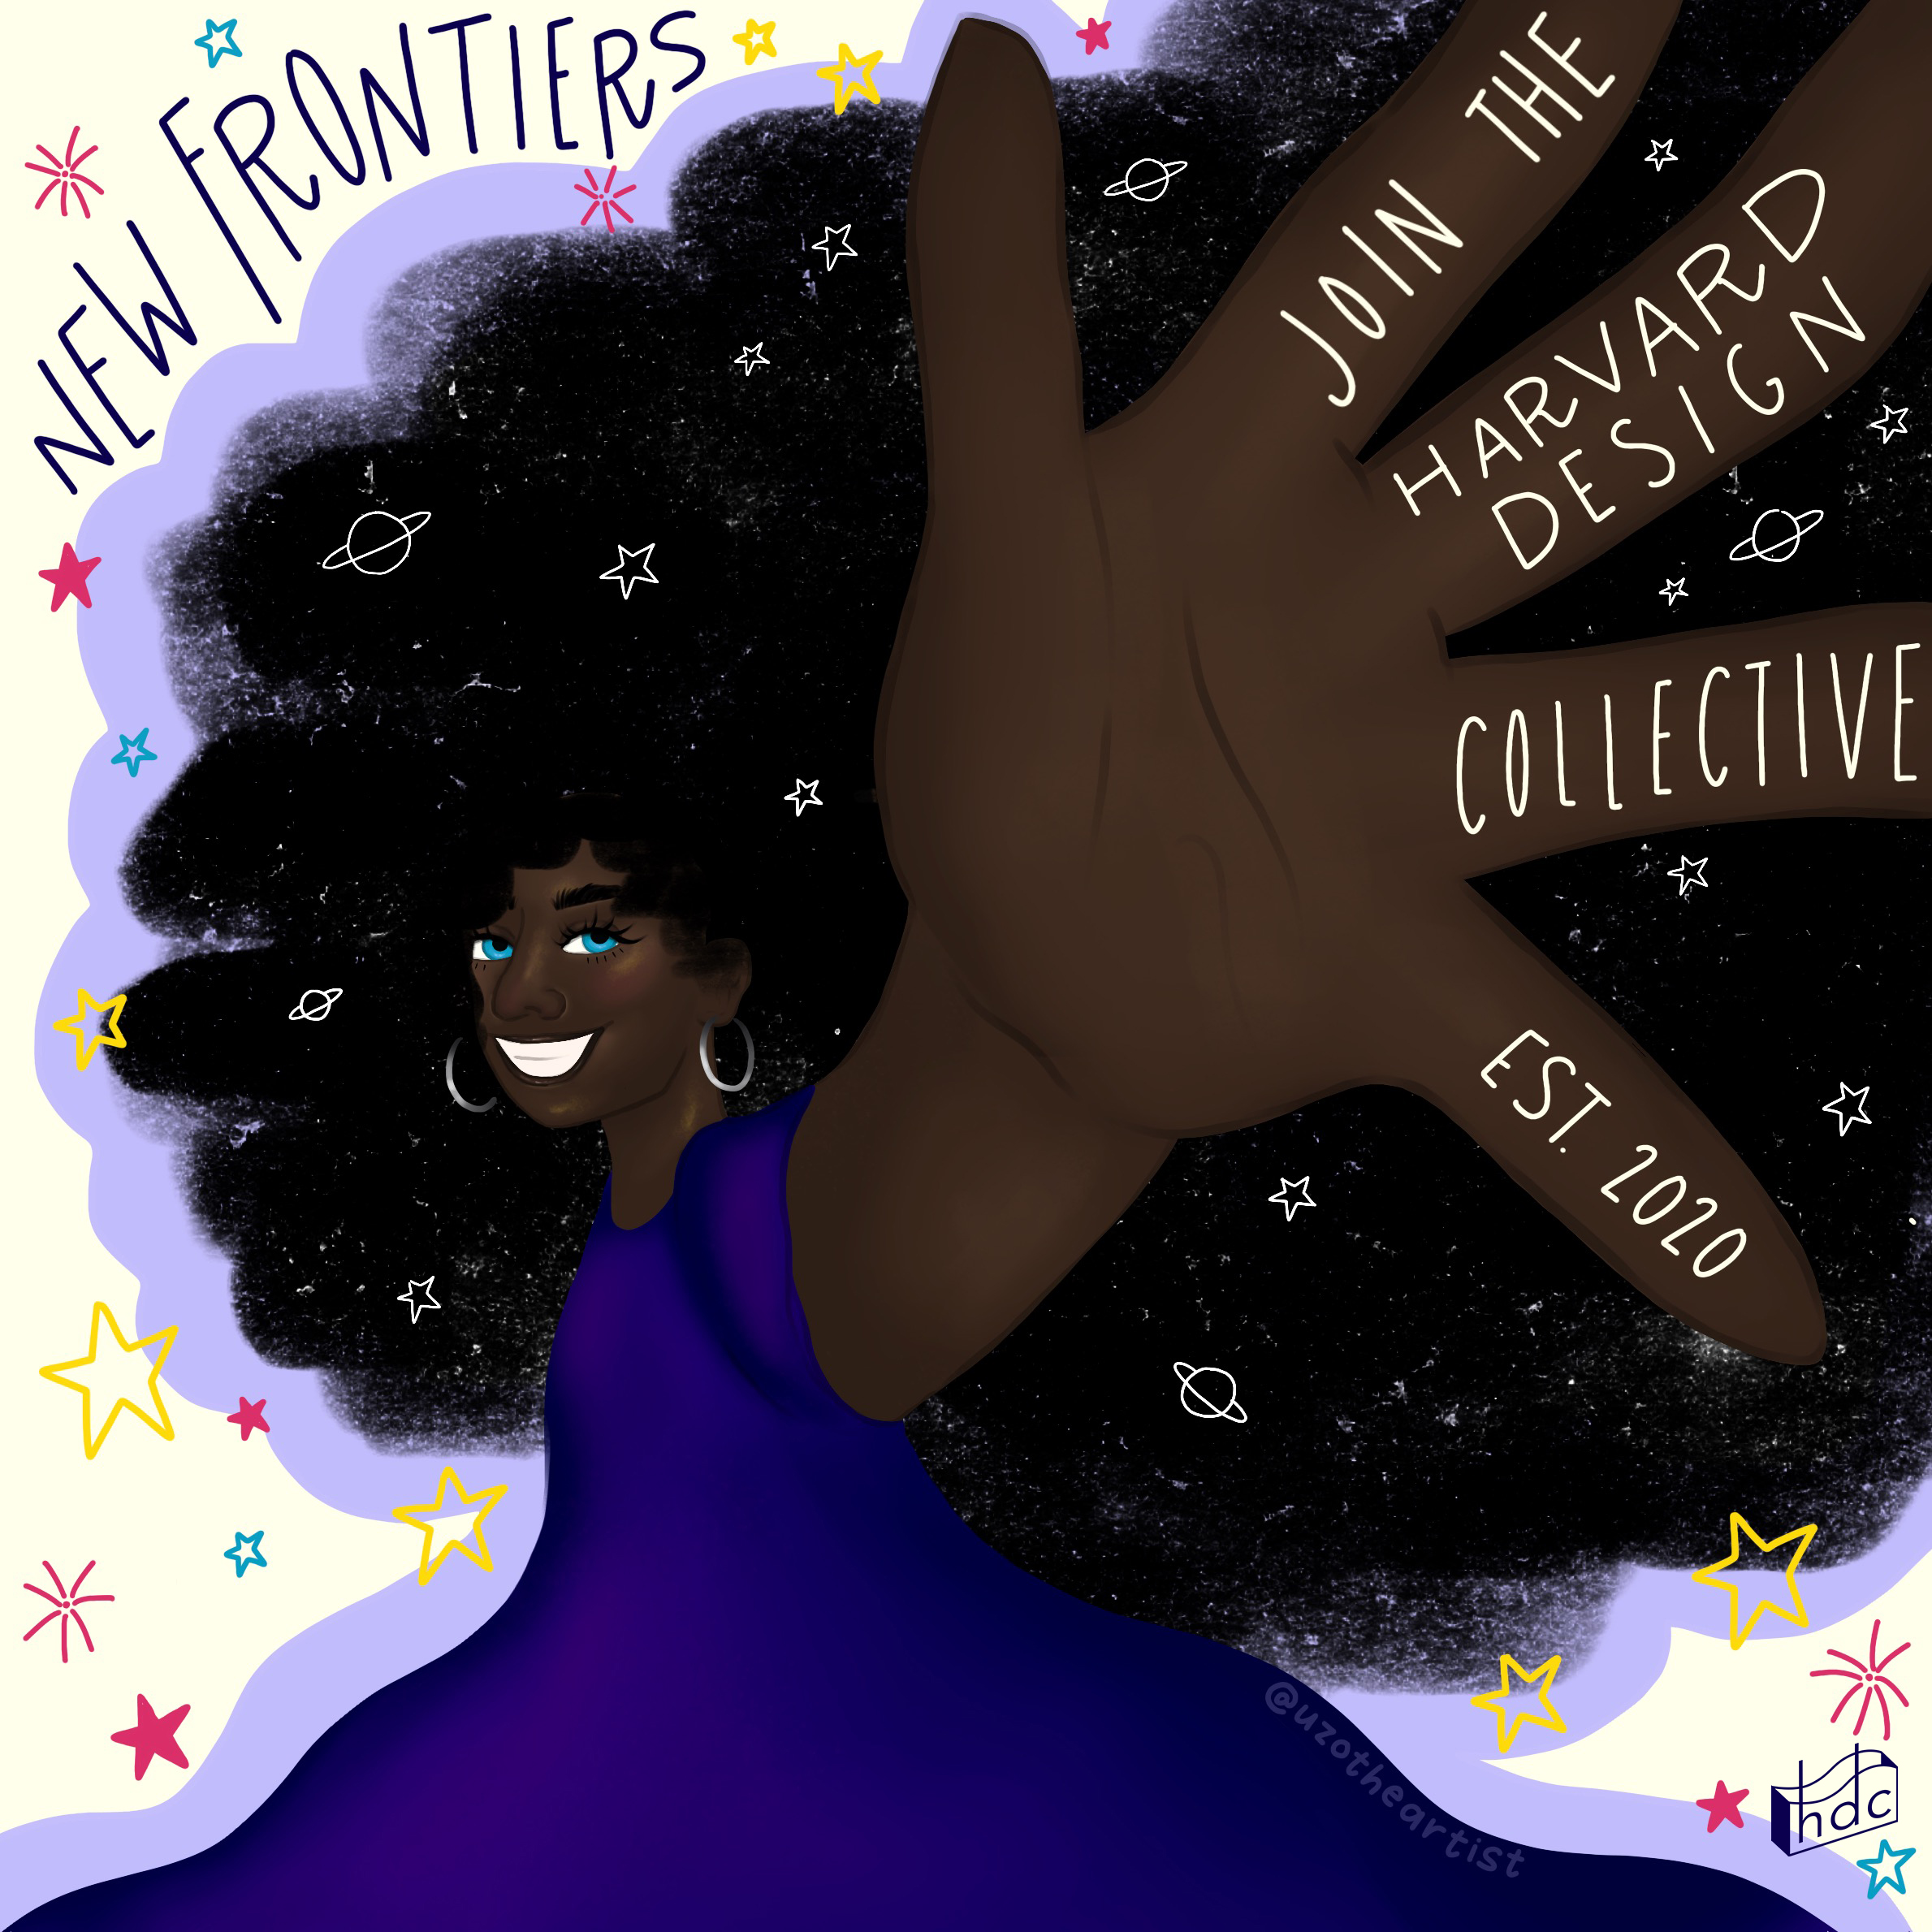 NEW FRONTIERS
JOIN THE
HARVARD
DESIGN
COLLECTIVE
EST. 2020
@uzotheartist
hdc